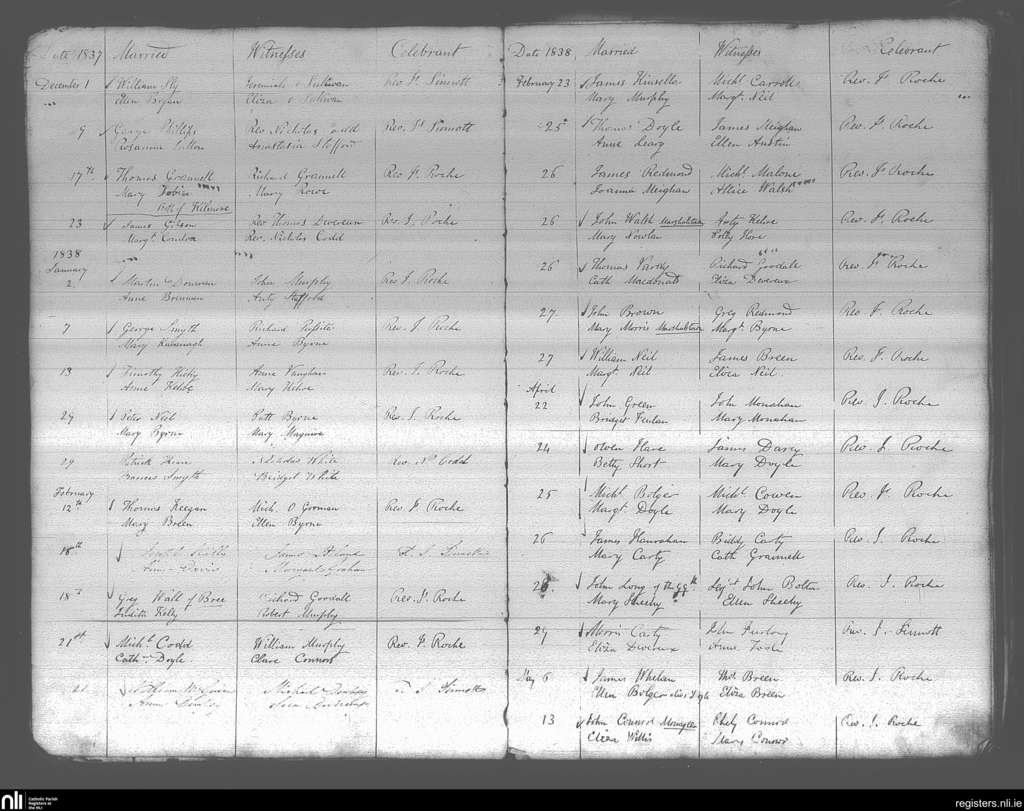 Date 1837 Married Witnesses Celebrant
December 1 William Sly Jeremiah O Sullivan Rev Js Sinnott
Ellen Bryan Eliza O Sullivan
9 George Phillips Rev. Nicholas Codd Rev. Js Sinnott
Rosanna Anastasia Stafford
17th Thomas Grannell Richard Grannell Rev Js Roche
Mary Tobin Mary Rowe
both of Kilmore
23 James Gibson Rev Thomas Devereux Rev. J. Roche
Margt Condon Rev. Nicholas Codd
1838
January
2 John Murphy Rev J. Roche
Anne Brennan Anty Stafford
7 George Smyth Richard Rev. J. Roche
Mary Kavanagh Anne Byrne
13 Timothy Anne Vaughan Rev. J. Roche
Anne Kehoe Mary Kehoe
29 Peter Neil Patt Byrne Rev J. Roche
Mary Byrne Mary Maguire
29 Patrick Nicholas White Rev. Ns Codd
Frances Smyth Bridget White
February
12th Thomas Keegan Mich. O Gorman Rev J. Roche
Mary Breen Ellen Byrne
18th Joseph James
Anne Davis Margaret Graham
18th Greg Wall of Bree Richard Goodall Rev. Js Roche
Judith Kelly Robert Murphy
21st Michl Codd William Murphy Rev. Js Roche
Cath Doyle Clare Connors
21 William Michael J. S. Sinnott
Anne
Date 1838 Married Witnesses Celebrant
February 23 James Kinsella Michl Carroll Rev. Js Roche
Mary Murphy Margt Neil
25 Thomas Doyle James Meighan Rev. Js Roche
Anne Leary Ellen Austin
26 James Redmond Michl Malone Rev. Js Roche
Joanna Meighan Allice Walsh
26 John Walsh Marshalstown Anty Kehoe Rev. Js Roche
Mary Nowlan Hore
26 Thomas Richard Goodall Rev. Js Roche
Cath Eliza Devereux
27 John Brown Greg Redmond Rev Js Roche
Mary Morris Marshalstown Margt Byrne
27 William Neil James Breen Rev. Js Roche
Margt Neil Eliza Neil
April
22 John Green John Monahan Rev. J. Roche
Bridget Furlan Mary Monahan
24 Owen Hare James Darcy Rev. J. Roche
Betty Short Mary Doyle
25 Michl Bolger Michl Cowen Rev Js Roche
Margt Doyle Mary Doyle
26 James Hanrahan Biddy Carty Rev. J. Roche
Mary Carty Cath Grannell
28 John Long of the 99th Serjt John Bolton Rev. J. Roche
Mary Sheehy Ellen Sheehy
29 Morris Carty John Furlong Rev. J. Sinnott
Eliza Devereux Anne Toole
May 6 James Whelan Thos Breen Rev. J. Roche
Ellen Bolger alias Doyle Eliza Breen
13 John Connors Monageer Phely Connors Rev. J. Roche
Eliza Willis Mary Connors
nli Catholic Parish
Registers at
the NLI
registers.nli.ie